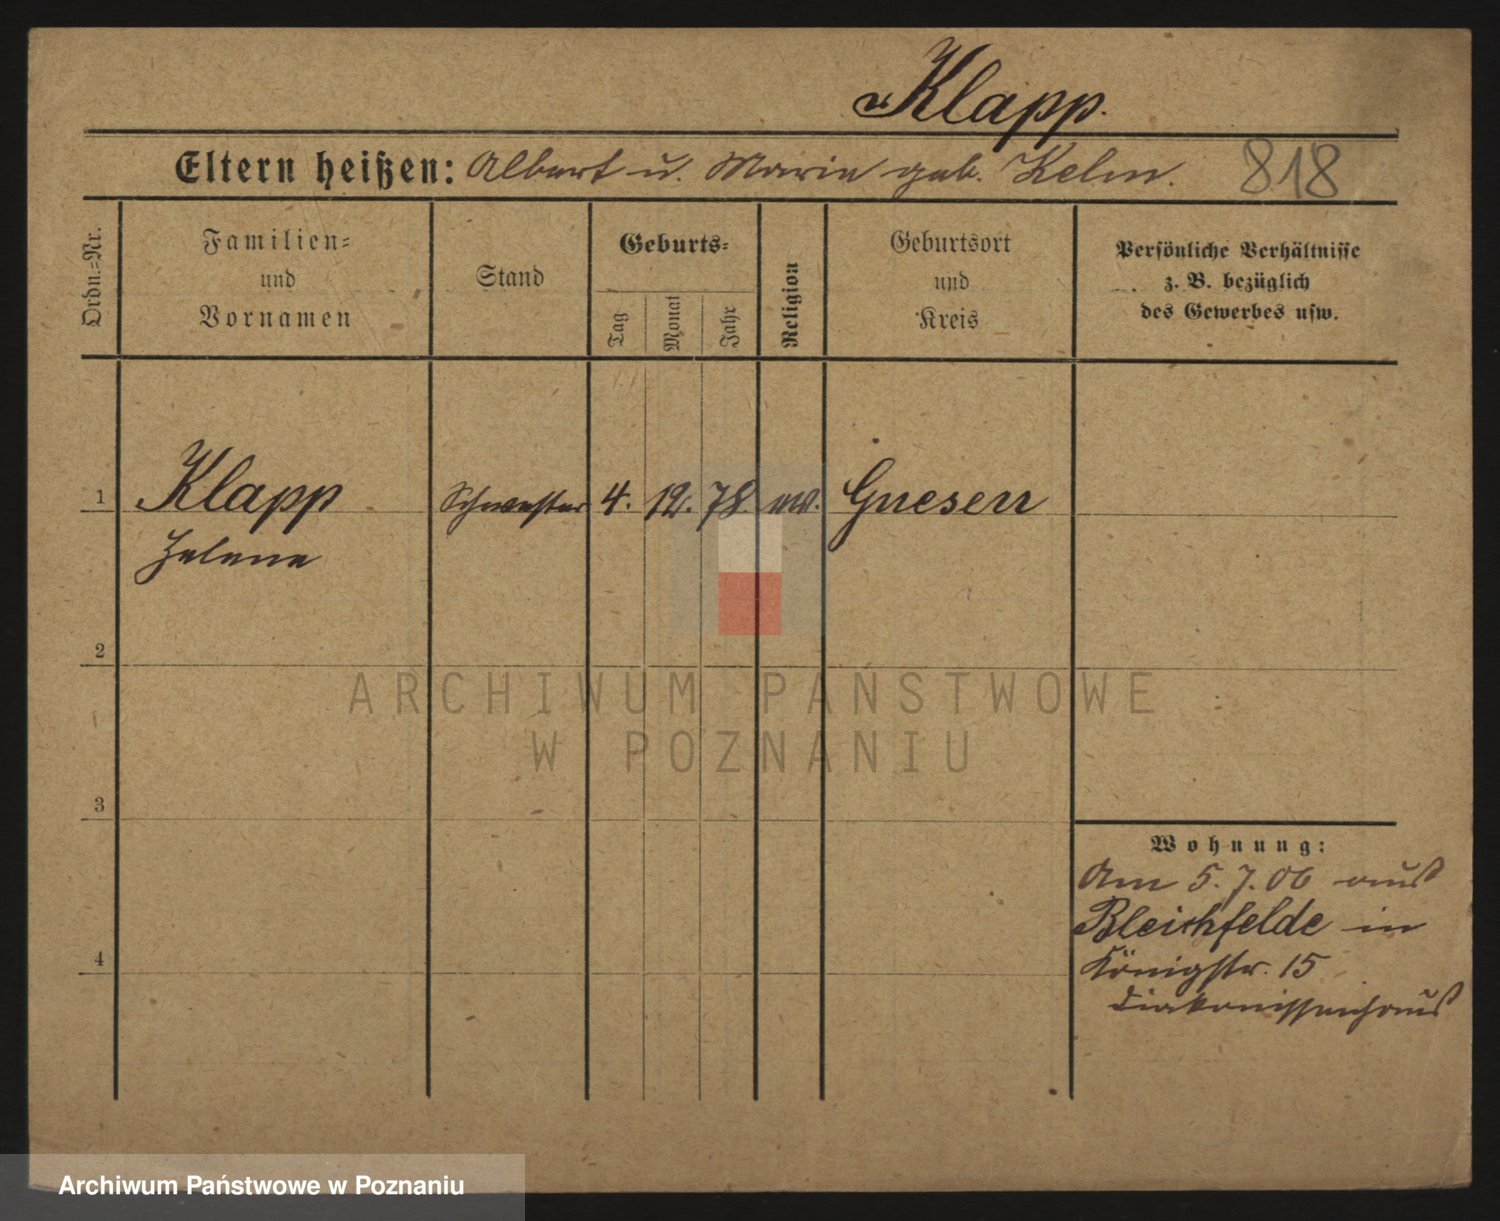 Klapp.
Eltern heißen: Albert u. Marie geb. Kelm. 818
Ordn.=Nr.
Familien=
und
Vornamen
Stand
Geburts=
Tag
Monat
Jahr
Religion
Geburtsort
und
Kreis
Persönliche Verhältnisse
z. B. bezüglich
des Gewerbes usw.
1 Klapp Schwester 4. 12. 78. ev. Gnesen
Helene
2
ARCHIWUM PAŃSTWOWE
W POZNANIU
3
Wohnung:
Am 5.7.06 aus
Bleichfelde in
4
Königstr. 15
Diakonissenhaus
Archiwum Państwowe w Poznaniu